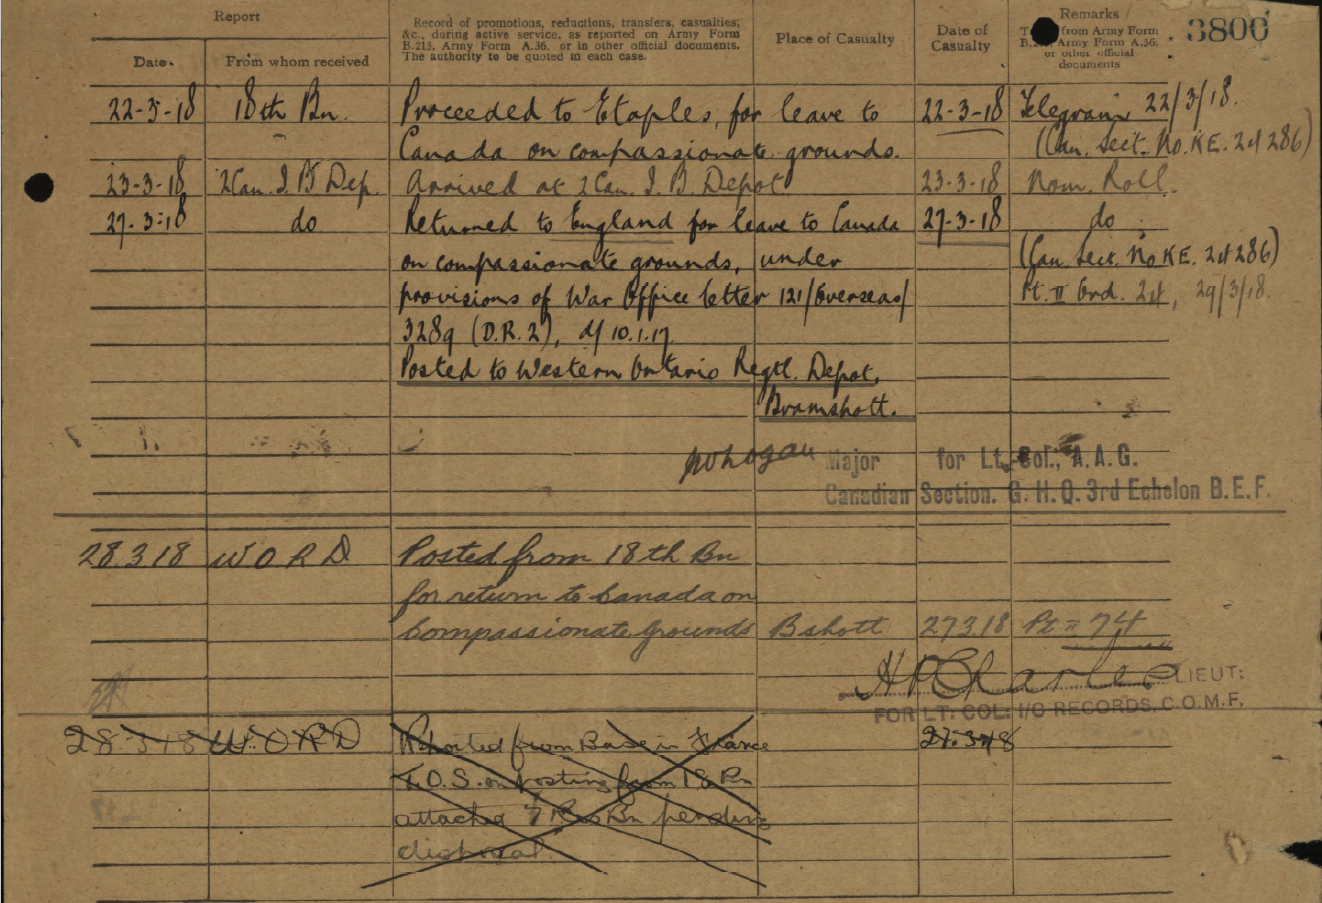 Report
Date.
From whom received
Record of promotions, reductions, transfers, casualties,
&c., during active service, as reported on Army Form
B.213, Army Form A.36, or in other official documents.
The authority to be quoted in each case.
Place of Casualty
Date of
Casualty
Remarks
from Army Form
Army Form A.36,
or other official
documents
3800
22-3-18 18th Bn. Proceeded to Etaples, for leave to 22-3-18 Telegram 22/3/18.
Canada on compassionate grounds. (Can. Sect. No. KE. 24 286)
23-3-18 2 Can. I. B. Dep. Arrived at 2 Can. I. B. Depot 23-3-18 Nom. Roll.
27-3-18 do Returned to England for leave to Canada 27-3-18 do
on compassionate grounds, under (Can. Sect. No KE. 24 286)
provisions of War Office letter 121/Overseas/ Pt. II Ord. 24, 29/3/18.
3289 (D.R.2), d/ 10.1.17.
Posted to Western Ontario Regtl. Depot,
Bramshott.
Major for Lt.-Col., A.A.G.
Canadian Section. G.H.Q. 3rd Echelon B.E.F.
28.3.18 W O R D Posted from 18th Bn
for return to Canada on
Compassionate Grounds Bshott 27.3.18 Pt II 74
LIEUT:
FOR LT: COL: I/C RECORDS, C.O.M.F.
28.3.18 W. O R D Reported from Base in France 27.3.18
T.O.S. on posting from 18 Bn
attached 7 Res Bn pending
disposal.